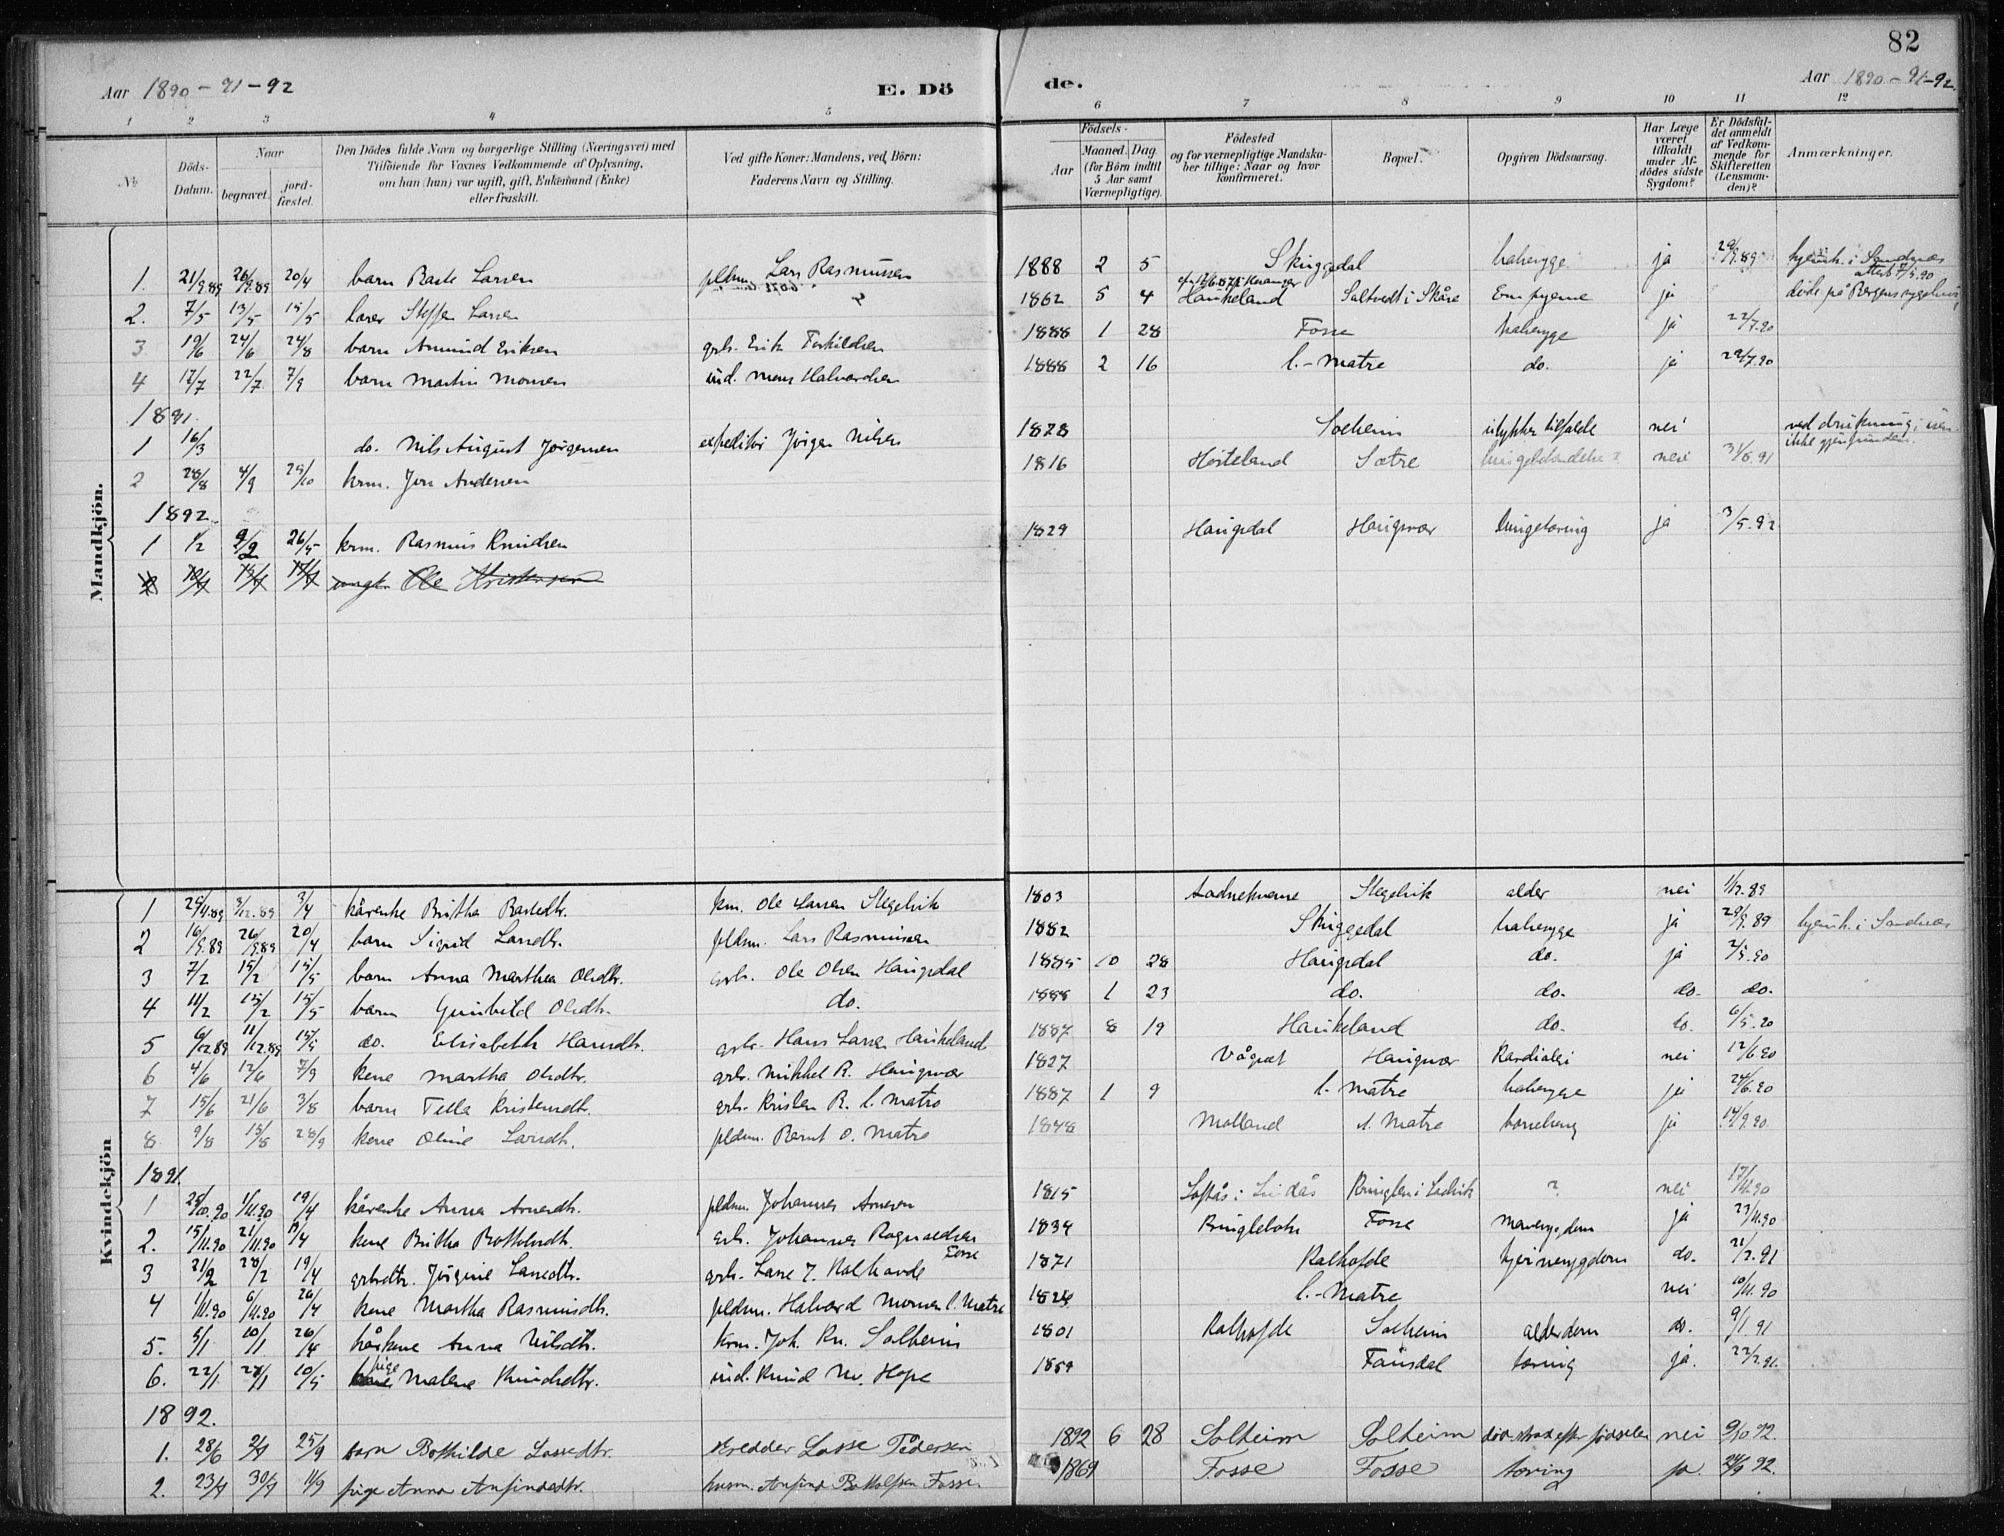 82
Aar 1890-91-92 E. Dö de. Aar 1890-91-92.
1 2 3 4 5 6 7 8 9 10 11 12
No
Döds-Datum.
Naar
begravet.
jord-fæstet.
Den Dödes fulde Navn og borgerlige Stilling (Næringsvei) med
Tilföiende for Voxnes Vedkommende af Oplysning,
om han (hun) var ugift, gift, Enkemand (Enke)
eller fraskilt.
Ved gifte Koner: Mandens, ved Börn:
Faderens Navn og Stilling.
Födsels-
Aar
Maaned. Dag.
(for Börn indtil
5 Aar samt
Værnepligtige).
Födested
og for værnepligtige Mandska-
ber tillige: Naar og hvor
Konfirmeret.
Bopæl.
Opgiven Dödsaarsag.
Har Læge
været
tilkaldt
under Af-
dödes sidste
Sygdom?
Er Dödsfal-
det anmeldt
af Vedkom-
mende for
Skifteretten
(Lensman-
den)?
Anmærkninger.
Mandkjön.
1. 21/9.89 26/9.89 20/4 barn Baste Larsen pldsm. Lars Rasmussen 1888 2 5 Skuggedal halsesyge ja 29/9.89 hjemh. i Sandnæs
2. 7/5 13/5 15/5 lærer Steffen Larsen 1862 5 4 Haukeland Saltvedt i Skåre Empyeme ja döde på Bergens sygehus
3 19/6 24/6 24/8 barn Amund Eriksen grb. Erik Torkildsen 1888 1 28 Fosse halsesyge ja 22/7.90
4 17/7 22/7 7/9 barn Martin Monsen ind. Mons Halvardsen 1888 2 16 l.-Matre do. ja 29/7.90
1891.
1 16/3 do. Nils August Jørgensen expeditör Jörgen Nilsen 1878 Solheim ulykkestilfælde nei ved drukning i isen
ikke gjenfunden.
2 28/8 4/9 29/10 krm. Jon Andersen 1816 Høiteland Sætre nei 31/8.91
1892.
1 1/2 9/2 26/5 krm. Rasmus Knudsen 1829 Haugsdal Haugsvær lungetæring ja 3/5.92
ungk. Ole Kristensen
Kvindekjön
1 29/11.89 3/12.89 3/4 kårenke Britha Bastedtr. km. Ole Larsen Stegelvik 1803 Stegelvik alder nei 1/12.89
2 16/9.89 26/9.89 20/4 barn Sigrid Larsdtr. pldsm. Lars Rasmussen 1882 Skuggedal halsesyge ja 29/9.89 hjemh. i Sandnæs
3 7/2 15/2 15/5 barn Anna Marthea Olsdtr. grb. Ole Olsen Haugsdal 1885 10 28 Haugsdal do. ja 2/5.90
4 11/2 15/2 15/5 barn Gunhild Olsdtr. do. 1888 1 23 do. do. do. do.
5 6/12.89 11/12.89 15/5 do. Elisabeth Hansdtr. grb. Hans Larsen Haukeland 1887 8 19 Haukeland do. do. 6/5.90
6 4/6 12/6 7/9 kone Martha Olsdtr. grb. Mikkel R. Haugsvær 1827 Vågset Haugsvær Kardialgi nei 12/6.90
7 15/6 21/6 3/8 barn Tella Kristensdtr. grb. Kristen R. l. Matre 1887 1 9 l. Matre halsesyge ja 24/6.90
8. 9/8 18/8 28/9 kone Oline Larsdtr. pldsm. Bernt O. Matre 1848 Molland n. Matre barselseng ja 14/9.90
1891.
1 25/10.90 1/11.90 19/4 kårenke Anna Arnesdtr. pldsm. Johannes Arnesen 1815 Loftås i Lindås ? nei 17/11.90
2. 15/11.90 21/11.90 19/4 kone Britha Bottolvsdtr. grb. Johannes Ragnvaldsen Fosse 1834 Fosse mavesygdom ja 23/11.90
3 21/2 28/2 19/4 grbrdtr. Jörgine Larsdtr. grb. Lasse J. Kalhovde 1871 Kalhofde hjernesygdom do. 21/2.91
4 1/11.90 6/11.90 26/4 kone Martha Rasmusdtr. pldsm. Halvard Monsen l. Matre 1828 l.-Matre nei 10/11.90
5. 5/1 10/1 26/4 kårkone Anna Nilsdtr. krm. Joh. Kn. Solheim 1801 Kalhofde Solheim alderdom do. 9/1.91
6. 22/1 28/1 10/5 pige Malene Knudsdtr. ind. Knud N. Hope 1859 Fannsdal tæring ja. 22/2.91.
1892.
1. 28/6 2/7 25/9 barn Bothilde Lassedtr. skredder Lasse Pedersen 1892 6 28 Solheim Solheim död strax efter födselen nei 9/10 92.
2. 23/7 30/7 11/9 pige Anna Anfindsdtr. husm. Anfind Bottolfsen Fosse. 1869 Fosse Fosse tæring ja. 24/9 92.